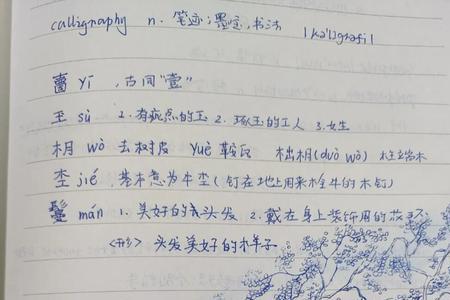 calligraphy n. 笔迹;墨宝,书法 /kəˈlɪɡrəfi/
yī ,古同“壹”
玊 sù 1.有疵点的玉 2.琢玉的工人 3.姓
枂 wò 去树皮 yuè 柮枂(duò wò)
jié,基本意为牛(钉在地上用来栓牛的木钉)
鬘 mán 1.美好的头发 2.戴在身上装饰用的
<形>头发美好的样子